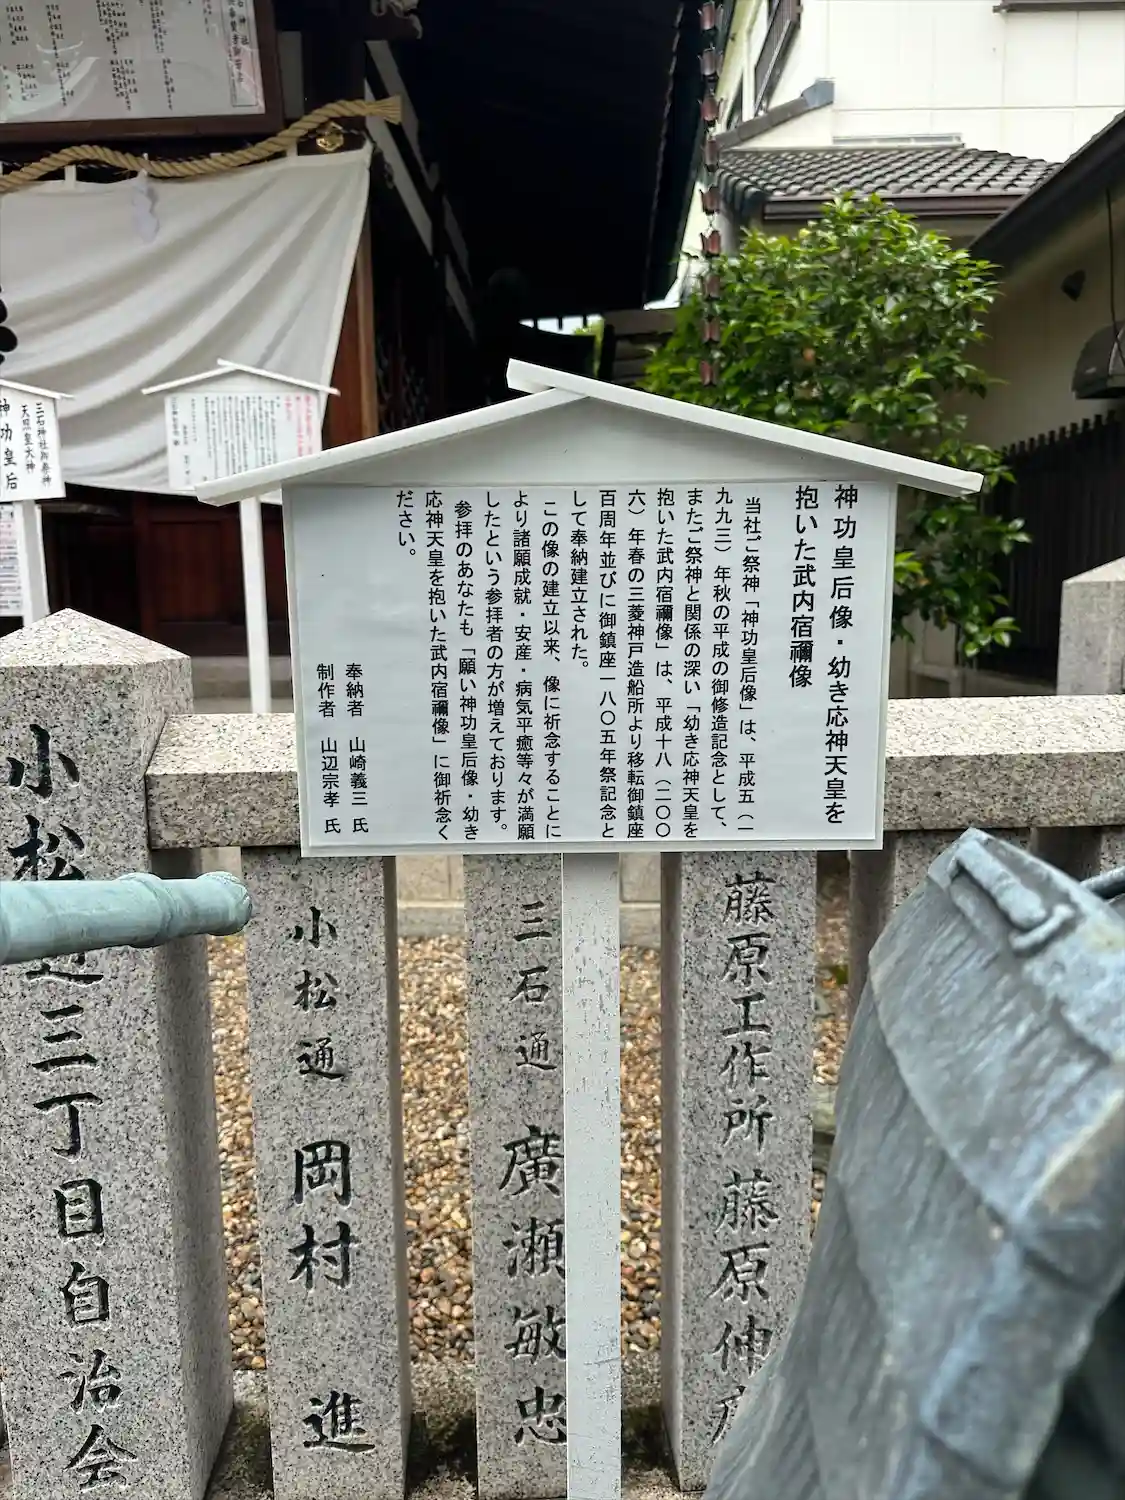 神功皇后像・幼き応神天皇を
抱いた武内宿禰像
当社ご祭神「神功皇后像」は、平成五(一
九九三)年秋の平成の御修造記念として、
またご祭神と関係の深い「幼き応神天皇を
抱いた武内宿禰像」は、平成十八(二〇〇
六)年春の三菱神戸造船所より移転御鎮座
百周年並びに御鎮座一八〇五年祭記念と
して奉納建立された。
この像の建立以来、像に祈念することに
より諸願成就・安産・病気平癒等々が満願
したという参拝者の方が増えております。
参拝のあなたも「願い神功皇后像・幼き
応神天皇を抱いた武内宿禰像」に御祈念く
ださい。
奉納者 山崎義三 氏
制作者 山辺宗孝 氏
三石神社御祭神
天照皇大神
神功皇后
藤原工作所 藤原伸
三石通 廣瀬敏忠
小松通 岡村 進
小松通三丁目自治会